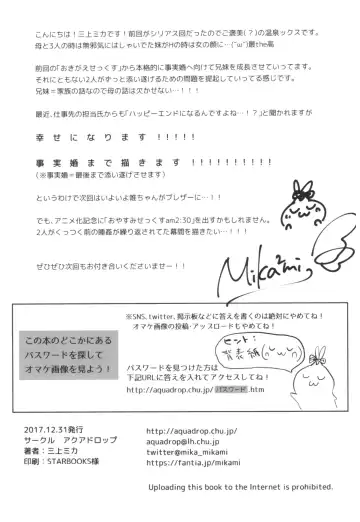 こんにちは！三上ミカです！前回がシリアス回だったのでご褒美(？)の温泉ックスです。
母と3人の時は無邪気にはしゃいでた妹がHの時は女の顔に…(¨ω¨)最the高
前回の「おきがえせっくす」から本格的に事実婚へ向けて兄妹を成長させていってます。
それにともない2人がずっと添い遂げるための問題を提起していってる感じです。
兄妹＝家族の話なので母の話は欠かせない…！！
最近、仕事先の担当氏からも「ハッピーエンドになるんですよね…！？」と聞かれますが
幸せになります！！！！！
事実婚まで描きます！！！！！！！！！！
(※事実婚＝最後まで添い遂げさせます)
というわけで次回はいよいよ姫ちゃんがブレザーに…！！
でも、アニメ化記念に「おやすみせっくすam2:30」を出すかもしれません。
2人がくっつく前の睡姦が繰り返されてた幕間を描きたい…！！！
ぜひぜひ次回もお付き合いくださいませー！！
Mikami
この本のどこかにある
パスワードを探して
オマケ画像を見よう！
※SNS、twitter、掲示板などに答えを書くのは絶対にやめてね！
オマケ画像の投稿・アッスロードもやめてね！
ヒント：
背表紙
パスワードを見つけた方は
下記URLに答えを入れてアクセスしてね！
http://aquadrop.chu.jp/ パスワード .htm
2017.12.31発行
サークル　アクアドロップ
著者：三上ミカ
印刷：STARBOOKS様
http://aquadrop.chu.jp/
aquadrop@lh.chu.jp
twitter@mika_mikami
https://fantia.jp/mikami
Uploading this book to the Internet is prohibited.